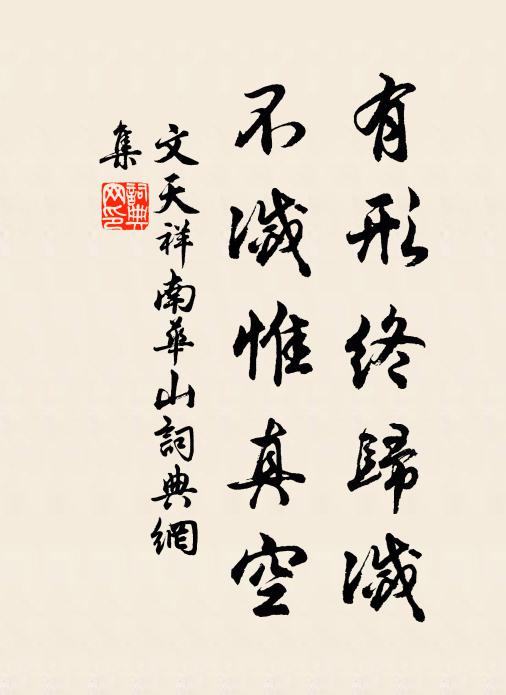 有形终歸滅
不滅惟真空
文天祥南華山詞典網
集
詞典网印